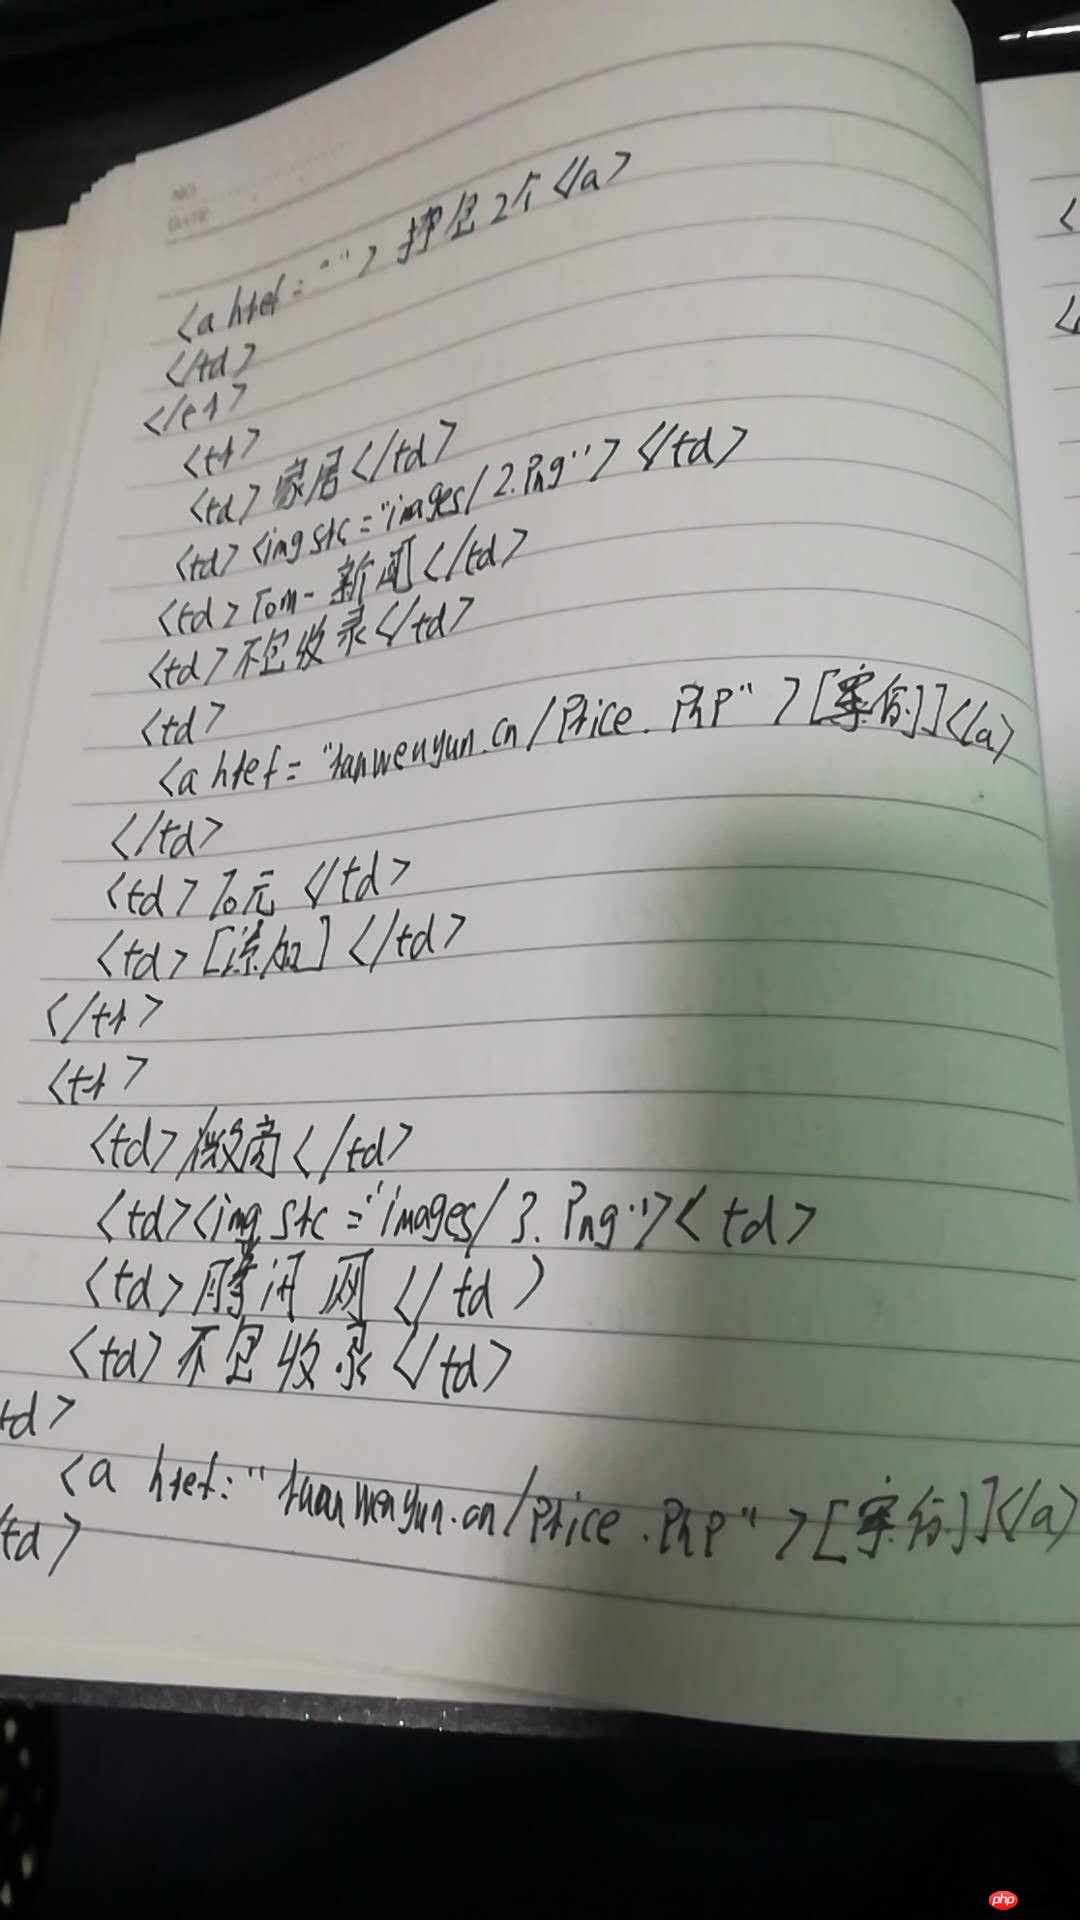 <a href="">押包2个</a>
</td>
</tr>
<tr>
<td>家居</td>
<td><img src="images/2.Png"></td>
<td>Tom-新闻</td>
<td>不包收录</td>
<td>
<a href="ranwenyun.cn/Price.PhP">[案例]</a>
</td>
<td>70元</td>
<td>[添加]</td>
</tr>
<tr>
<td>微商</td>
<td><img src="images/3.Png"><td>
<td>腾讯网</td>
<td>不包收录</td>
td>
<a href="ruanwenyun.cn/Price.PhP">[案例]</a>
td>
php